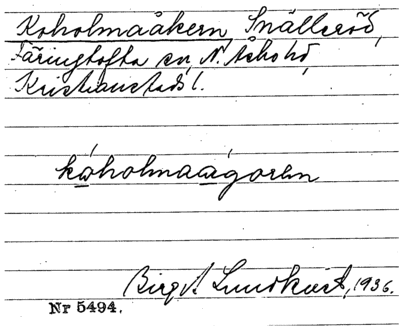 Koholmaåkern, Snälleröd,
Färingtofta sn, N. Åsbo hd,
Kristianstads l.
kóholmaàgoren
Birgit Lundkvist, 1936.
Nr 5494.